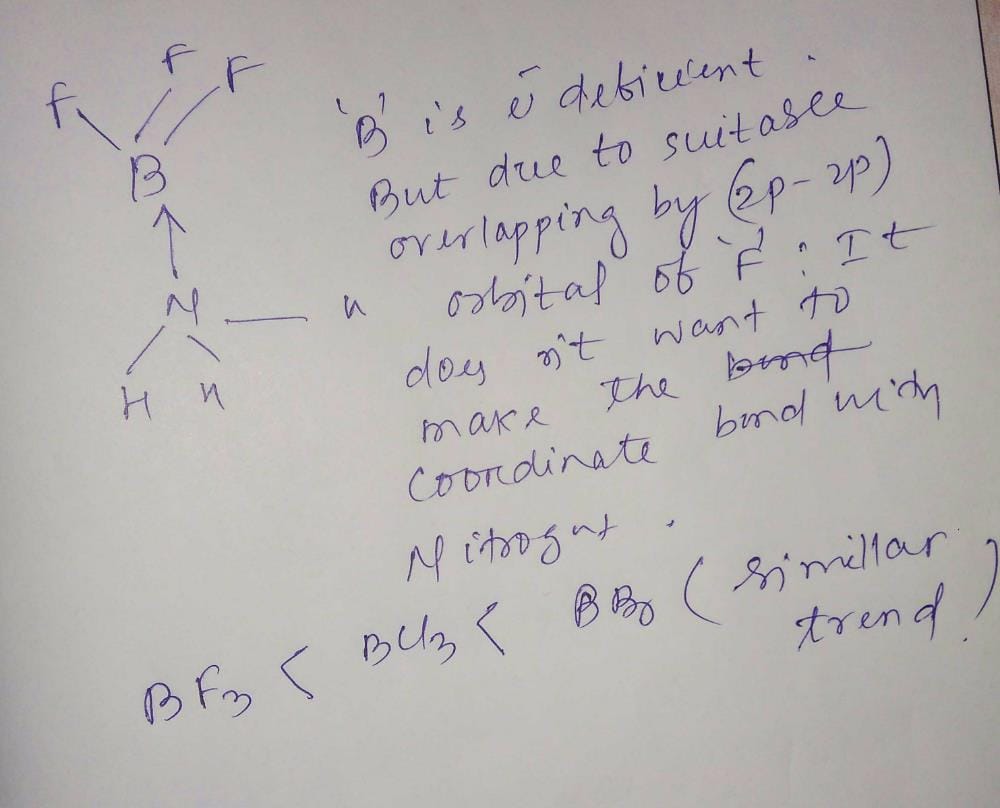 F F F
B
N H
H H
'B' is ē deficient.
But due to suitable
overlapping by (2p-2p)
orbital of 'F'. It
does n't want to
make the bond
coordinate bond with
Nitrogen.
BF3 < BCl3 < BBr3 (simillar
trend)